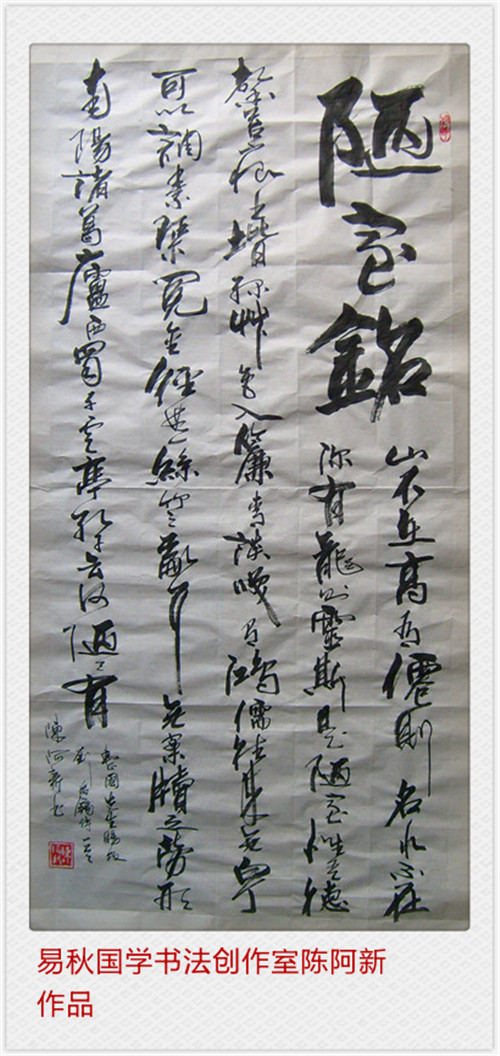 陋室銘
山不在高有僊則名水不在
深有龍則靈斯是陋室惟吾德
馨苔痕上堦绿艸色入簾青談咲有鴻儒往来無白丁
可以調素琴閱金經無絲竹之亂耳無案牘之勞形
南陽諸葛廬西蜀子雲亭孔子云何陋之有
先生賜教
劉禹錫詩一首
陳阿新书
易秋国学书法创作室陈阿新
作品